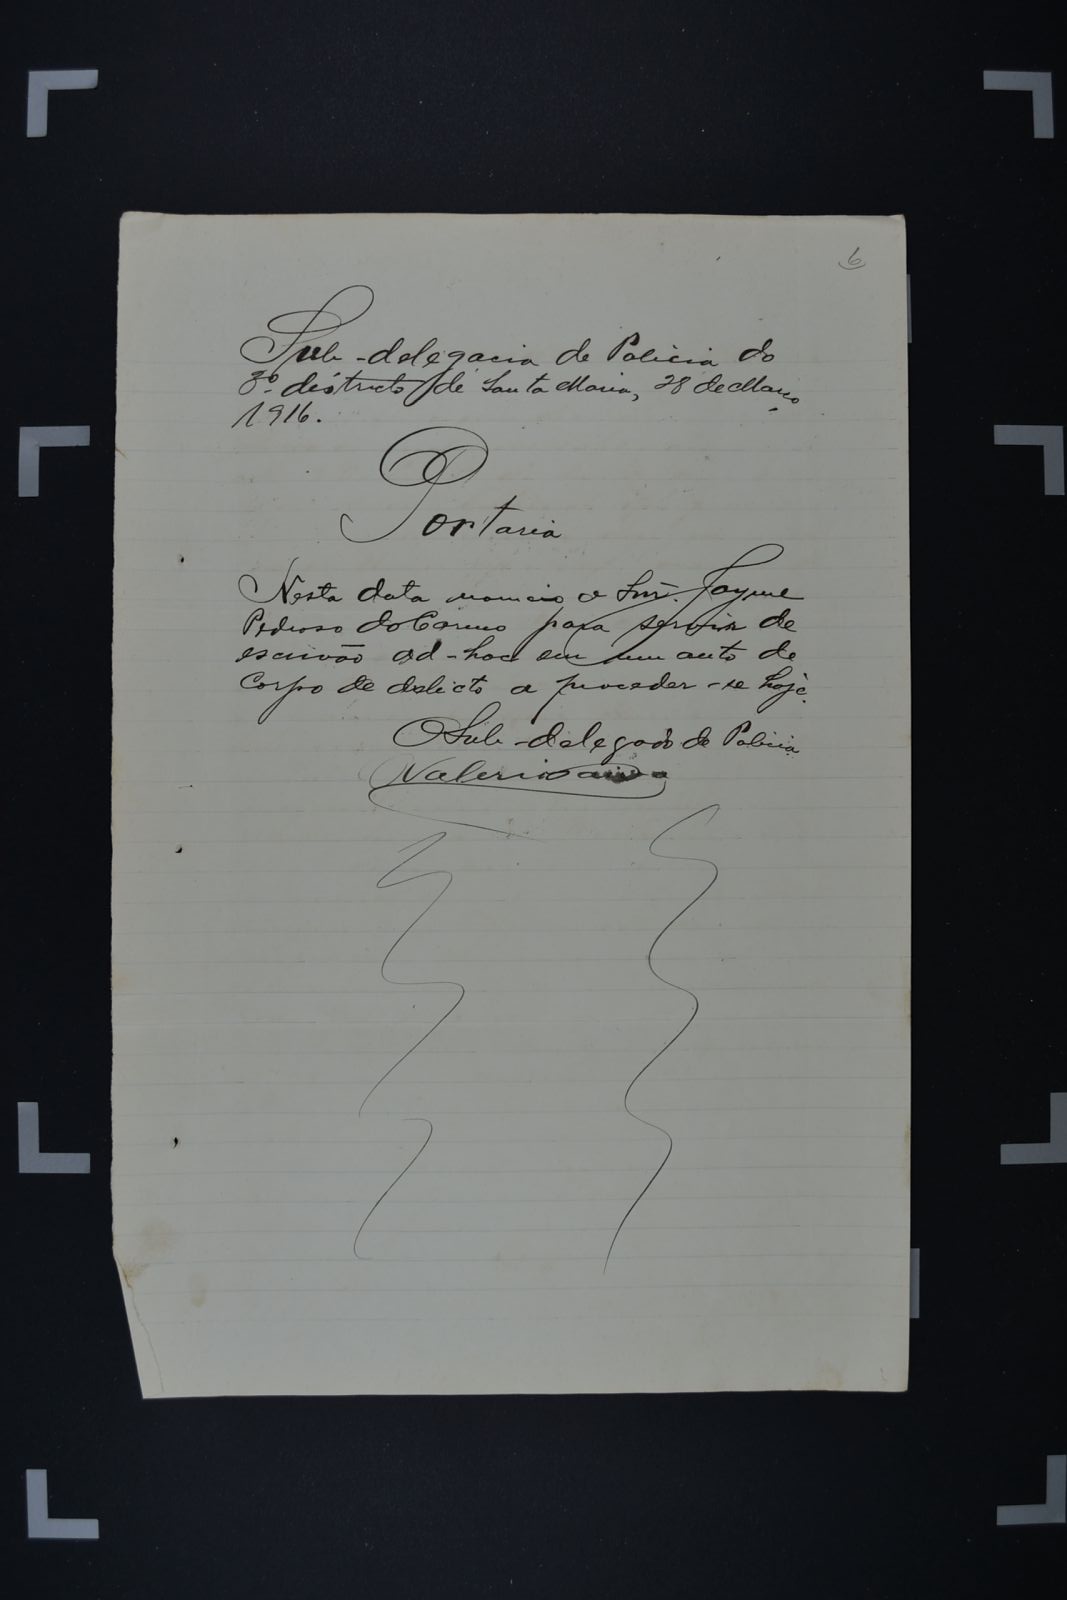 6
Sub-delegacia de Policia do
3º. districto de Santa Maria, 28 de Março
1916.
Portaria
Nesta data nomeio o Snr. Jayme
Pedroso do Carmo para servir de
escrivão ad-hoc em um auto de
corpo de delicto a proceder-se hoje.
O Sub-delegado de Policia
Valerio